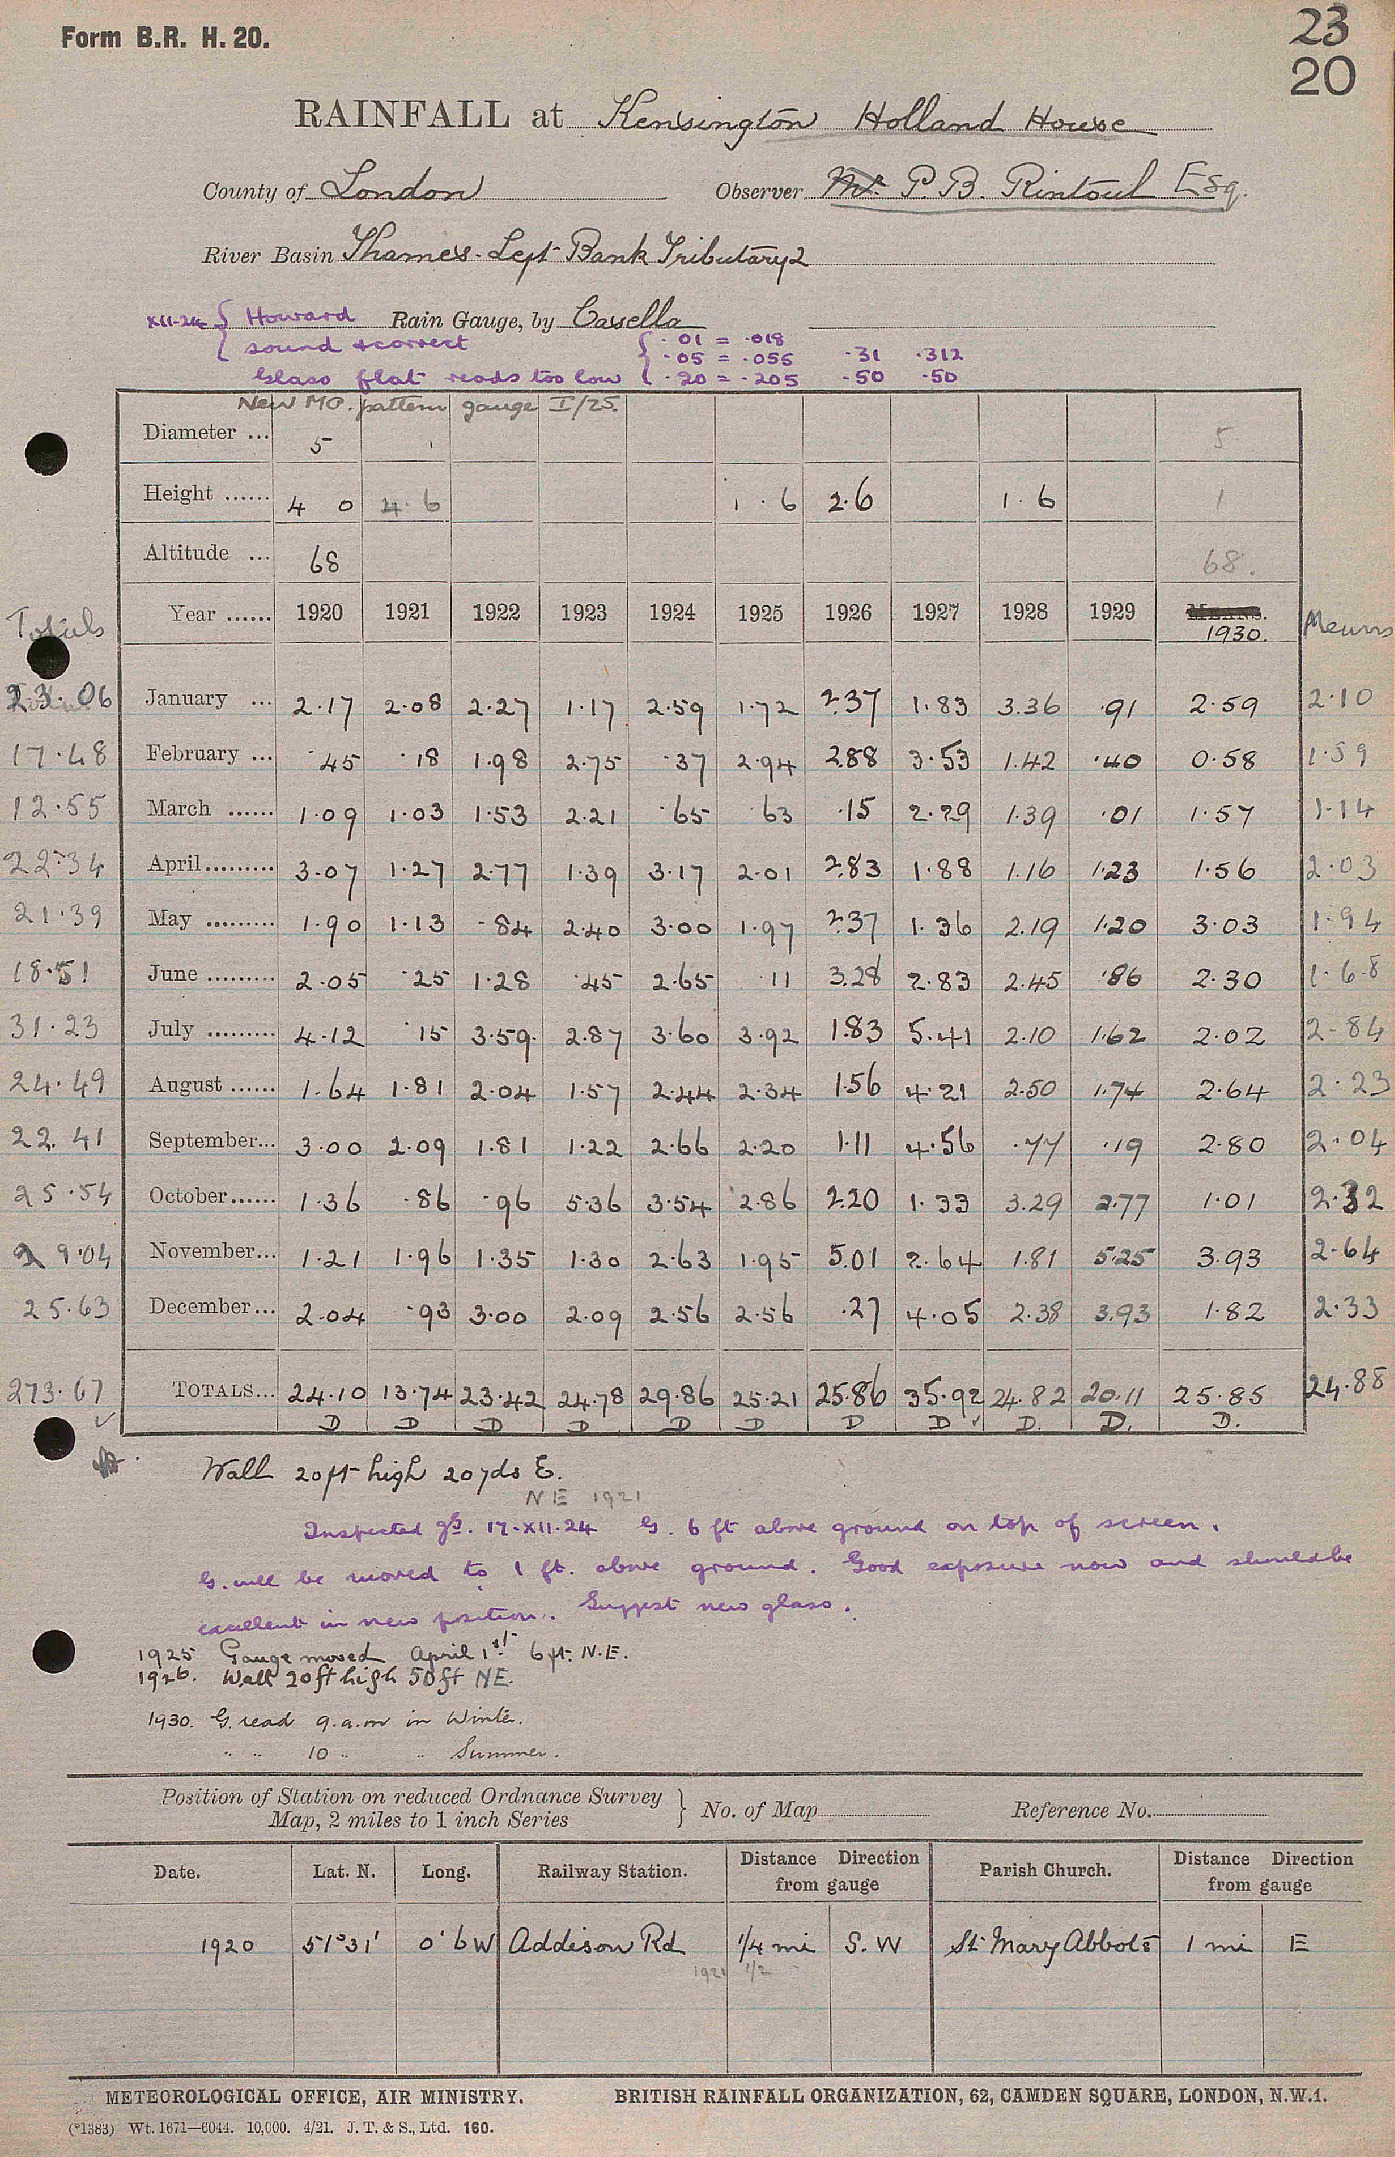 Form B.R. H. 20.
23
20
RAINFALL at Kensington Holland House
County of London Observer Mr. P. B. Rintoul Esq.
River Basin Thames - Left Bank Tributary 2
XII-24 { Howard Rain Gauge, by Casella
sound & correct { .01 = .018
.05 = .055 .31 .312
Glass flat reads too low .20 = .205 .50 .50
New MO. pattern gauge I/25.
Diameter ... 5 5
Height ...... 4 0 4.6 1.6 2.6 1.6 1
Altitude ... 68 68.
Totals Year ...... 1920 1921 1922 1923 1924 1925 1926 1927 1928 1929 MEANS. 1930. Means
23.06 January ... 2.17 2.08 2.27 1.17 2.59 1.72 2.37 1.83 3.36 .91 2.59 2.10
17.48 February ... .45 .18 1.98 2.75 .37 2.94 2.88 3.53 1.42 .40 0.58 1.59
12.55 March ...... 1.09 1.03 1.53 2.21 .65 .63 .15 2.29 1.39 .01 1.57 1.14
22.34 April......... 3.07 1.27 2.77 1.39 3.17 2.01 2.83 1.88 1.16 1.23 1.56 2.03
21.39 May ......... 1.90 1.13 .84 2.40 3.00 1.97 2.37 1.36 2.19 1.20 3.03 1.94
18.51 June ......... 2.05 .25 1.28 .45 2.65 .11 3.28 2.83 2.45 .86 2.30 1.68
31.23 July ......... 4.12 .15 3.59 2.87 3.60 3.92 1.83 5.41 2.10 1.62 2.02 2.84
24.49 August ...... 1.64 1.81 2.04 1.57 2.44 2.34 1.56 4.21 2.50 1.74 2.64 2.23
22.41 September... 3.00 2.09 1.81 1.22 2.66 2.20 1.11 4.56 .77 .19 2.80 2.04
25.54 October...... 1.36 .86 .96 5.36 3.54 2.86 2.20 1.33 3.29 2.77 1.01 2.32
29.04 November... 1.21 1.96 1.35 1.30 2.63 1.95 5.01 2.64 1.81 5.25 3.93 2.64
25.63 December... 2.04 .93 3.00 2.09 2.56 2.56 .27 4.05 2.38 3.93 1.82 2.33
273.67 TOTALS... 24.10 13.74 23.42 24.78 29.86 25.21 25.86 35.92 24.82 20.11 25.85 24.88
✓ D D D D D D D D ✓ D. D. D.
Wall 20 ft high 20 yds E.
NE 1921
Inspected 17.XII.24 G. 6 ft above ground on top of screen.
G. will be moved to 1 ft. above ground. Good exposure now and should be
excellent in new position. Suggest new glass.
1925 Gauge moved April 1st 6 ft. N.E.
1926. Wall 20 ft high 50 ft NE.
1930. G. read 9. a.m in Winter.
" " 10 " " Summer.
Position of Station on reduced Ordnance Survey
Map, 2 miles to 1 inch Series } No. of Map Reference No.
Date. Lat. N. Long. Railway Station. Distance Direction from gauge Parish Church. Distance Direction from gauge
1920 51°31' 0°6W Addison Rd 1/4 mi S.W St Mary Abbots 1 mi E
1921 1/2
METEOROLOGICAL OFFICE, AIR MINISTRY. BRITISH RAINFALL ORGANIZATION, 62, CAMDEN SQUARE, LONDON, N.W.1.
(*1383) Wt. 1671—6044. 10,000. 4/21. J. T. & S., Ltd. 160.